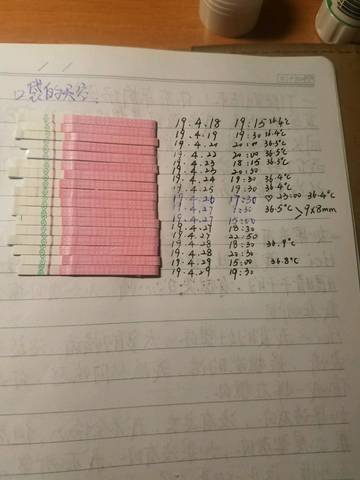 口袋的天空
19.4.18 19:15 36.4℃
19.4.19 19:30 36.4℃
19.4.20 20:00 36.5℃
19.4.22 20:00 36.5℃
19.4.23 18:15 36.5℃
19.4.23 20:30
19.4.24 19:30 36.4℃
19.4.25 19:30 36.4℃
19.4.26 19:30 ♡23:00 36.4℃
19.4.27 7:30 36.5℃ 9x8mm
19.4.27 15:00
19.4.27 18:30
19.4.27 22:50
19.4.28 18:30 36.9℃
19.4.28 20:30
19.4.29 15:00 36.8℃
19.4.29 19:30